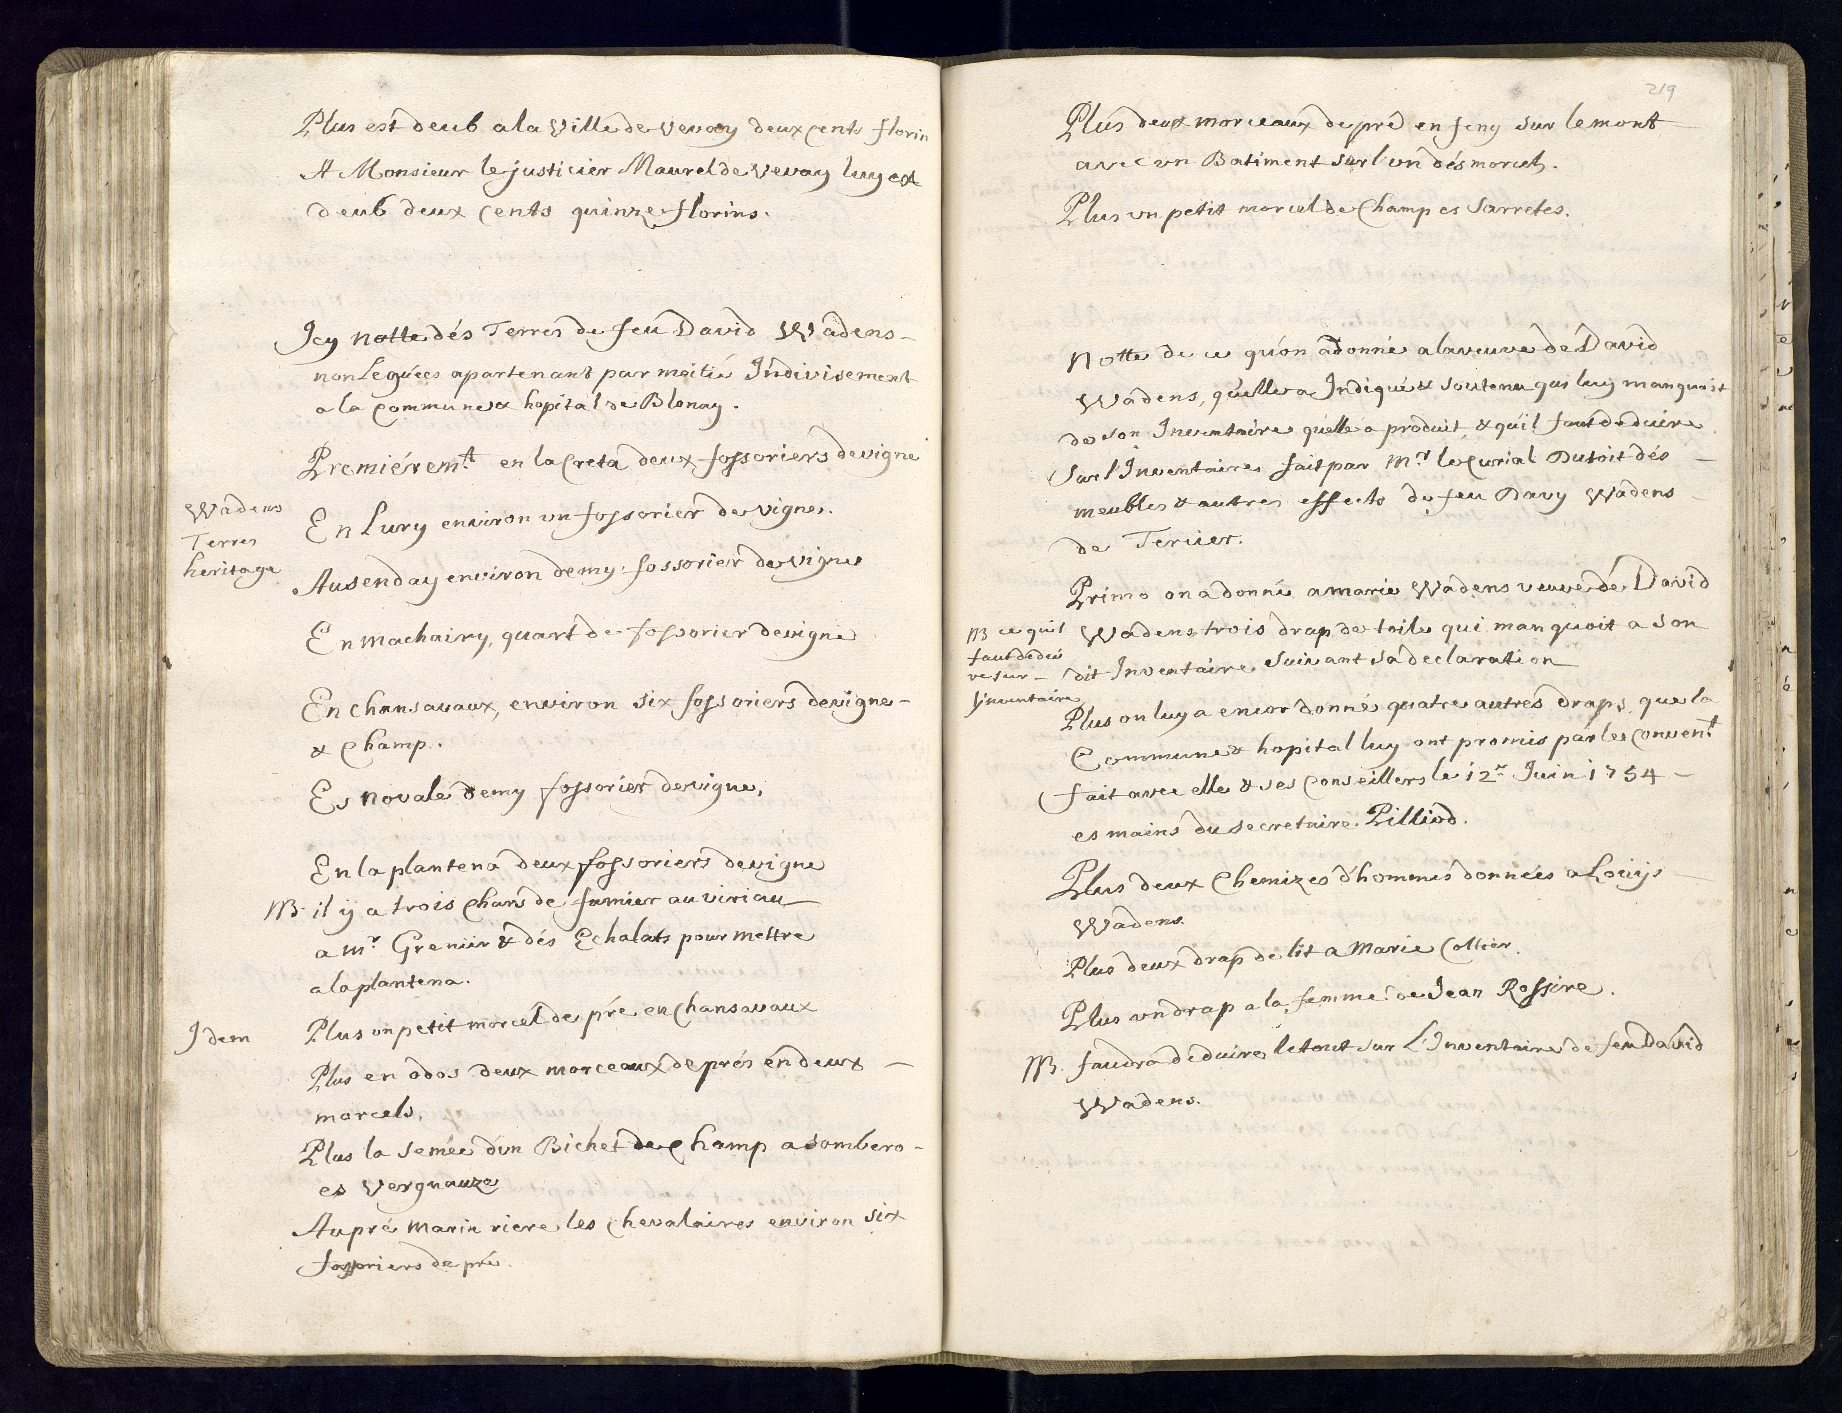 Plus est deub a la Ville de Vevay deux cents florin
A Monsieur le justicier Maurel de Vevay luy est
deub deux cents quinze florins.
Icy notte dés Terres de feu David Wadens
non Leguées apartenant par moitié Indivisement
a la Commune & hopital de Blonay.
Premiérem.t en la Creta deux fossoriers de vigne
Wadens
Terres
heritage
En Lury environ un fossorier de vigne.
Au senday environ demy fossorier de vigne
En machairy, quart de fossorier de vigne
En Chansavaux, environ six fossoriers de vigne
& Champ.
Es Novale demy fossorier de vigne,
En la plantena deux fossoriers de vigne
NB. il ÿ a trois Chars de fumier au viriau
a Mr. Grenier & dés Echalats pour mettre
a la plantena.
Idem
Plus un petit morcel de pré en Chansavaux
Plus en odos deux morceaux de prés en deux
morcels,
Plus la semée d'un Bichet de Champ a sombero
es Vergnauze
Au pré Marin riere les Chevalaires environ six
fossoriers de pré.
219
Plus deux morceaux de pré en feny sur le mont
avec un Batiment sur l'un dés morcels.
Plus un petit morcel de Champ es Sarretes.
Notte de ce qu'on a donné a la veuve de David
Wadens, qu'elle a Indiqué & soutenu qui luy manquoit
de son Inventaire qu'elle a produit, & qu'il faut deduire
sur l'Inventaire fait par Mr. le Curial Dutoit dés
meubles & autres effects de feu Davy Wadens
de Tercier.
Primo on a donné a marie Wadens veuve de David
NB ce qu'il
faut dedui
re sur
l'inventaire
Wadens trois drap de toile qui manquoit a son
dit Inventaire suivant sa declaration
Plus on luy a encor donné quatre autres draps, que la
Commune & hopital luy ont promis par le Conven.t
fait avec elle & ses Conseillers le 12e. Juin 1754
es mains du secretaire Pilliod.
Plus deux Chemizes d'hommes données a Loüÿs
Wadens.
Plus deux drap de lit a Marie Collier.
Plus un drap a la femme de Jean Rossire.
NB. faudra deduire le tout sur L'Inventaire de feu David
Wadens.